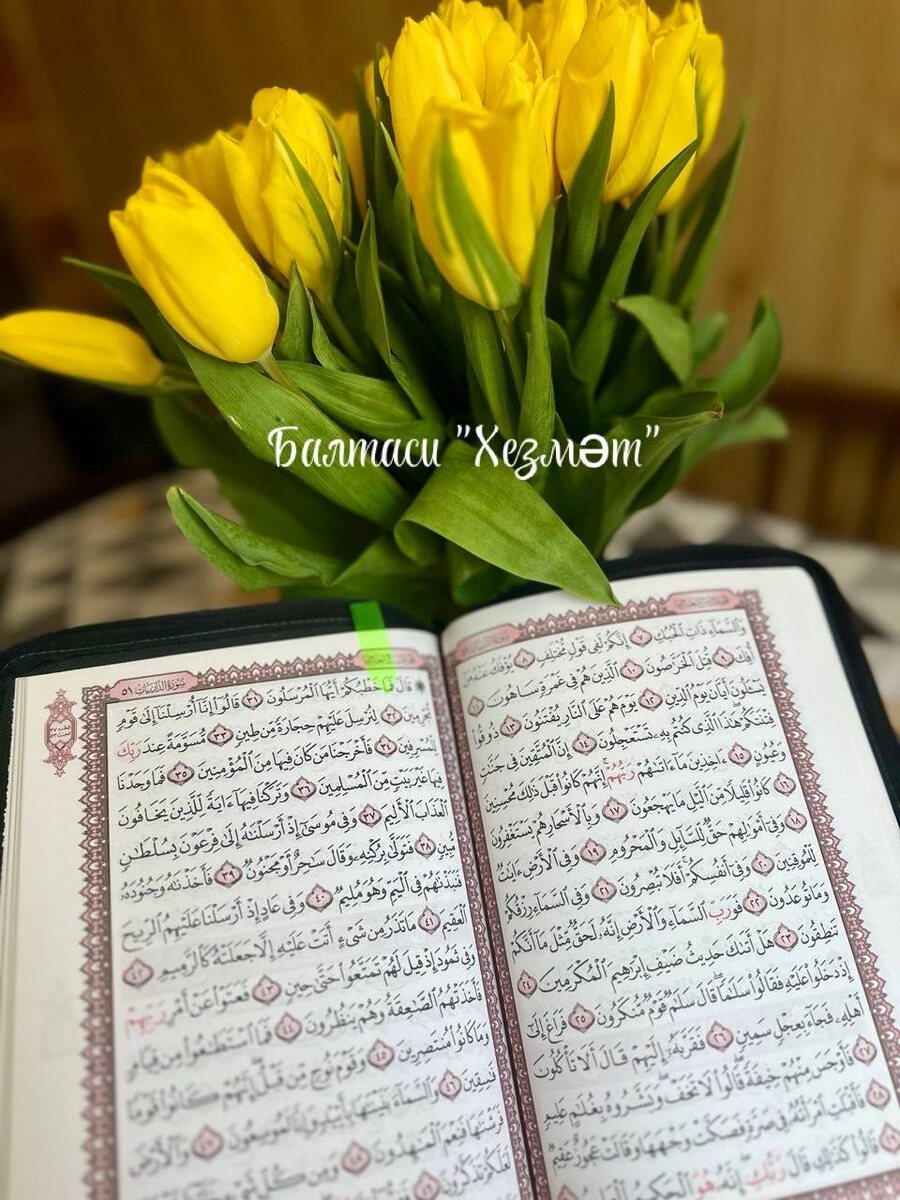 Балтаси "Хезмәт"
وَٱلسَّمَآءِ ذَاتِ ٱلْحُبُكِ ٧ إِنَّكُمْ لَفِى قَوْلٍ مُّخْتَلِفٍ ٨ يُؤْفَكُ عَنْهُ مَنْ
أُفِكَ ٩ قُتِلَ ٱلْخَرَّٰصُونَ ١٠ ٱلَّذِينَ هُمْ فِى غَمْرَةٍ سَاهُونَ ١١
يَسْـَٔلُونَ أَيَّانَ يَوْمُ ٱلدِّينِ ١٢ يَوْمَ هُمْ عَلَى ٱلنَّارِ يُفْتَنُونَ ١٣ ذُوقُوا۟
فِتْنَتَكُمْ هَٰذَا ٱلَّذِى كُنتُم بِهِۦ تَسْتَعْجِلُونَ ١٤ إِنَّ ٱلْمُتَّقِينَ فِى جَنَّٰتٍ
وَعُيُونٍ ١٥ ءَاخِذِينَ مَآ ءَاتَىٰهُمْ رَبُّهُمْ إِنَّهُمْ كَانُوا۟ قَبْلَ ذَٰلِكَ مُحْسِنِينَ
١٦ كَانُوا۟ قَلِيلًا مِّنَ ٱلَّيْلِ مَا يَهْجَعُونَ ١٧ وَبِٱلْأَسْحَارِ هُمْ يَسْتَغْفِرُونَ
١٨ وَفِىٓ أَمْوَٰلِهِمْ حَقٌّ لِّلسَّآئِلِ وَٱلْمَحْرُومِ ١٩ وَفِى ٱلْأَرْضِ ءَايَٰتٌ
لِّلْمُوقِنِينَ ٢٠ وَفِىٓ أَنفُسِكُمْ أَفَلَا تُبْصِرُونَ ٢١ وَفِى ٱلسَّمَآءِ رِزْقُكُمْ
وَمَا تُوعَدُونَ ٢٢ فَوَرَبِّ ٱلسَّمَآءِ وَٱلْأَرْضِ إِنَّهُۥ لَحَقٌّ مِّثْلَ مَآ أَنَّكُمْ
تَنطِقُونَ ٢٣ هَلْ أَتَىٰكَ حَدِيثُ ضَيْفِ إِبْرَٰهِيمَ ٱلْمُكْرَمِينَ ٢٤
إِذْ دَخَلُوا۟ عَلَيْهِ فَقَالُوا۟ سَلَٰمًا قَالَ سَلَٰمٌ قَوْمٌ مُّنكَرُونَ ٢٥ فَرَاغَ إِلَىٰٓ
أَهْلِهِۦ فَجَآءَ بِعِجْلٍ سَمِينٍ ٢٦ فَقَرَّبَهُۥٓ إِلَيْهِمْ قَالَ أَلَا تَأْكُلُونَ
٢٧ فَأَوْجَسَ مِنْهُمْ خِيفَةً قَالُوا۟ لَا تَخَفْ وَبَشَّرُوهُ بِغُلَٰمٍ عَلِيمٍ
٢٨ فَأَقْبَلَتِ ٱمْرَأَتُهُۥ فِى صَرَّةٍ فَصَكَّتْ وَجْهَهَا وَقَالَتْ عَجُوزٌ عَقِيمٌ
٢٩ قَالُوا۟ كَذَٰلِكِ قَالَ رَبُّكِ إِنَّهُۥ هُوَ ٱلْحَكِيمُ ٱلْعَلِيمُ
سُورَةُ الذَّارِيَاتِ ٥١
قَالَ فَمَا خَطْبُكُمْ أَيُّهَا ٱلْمُرْسَلُونَ ٣١ قَالُوٓا۟ إِنَّآ أُرْسِلْنَآ إِلَىٰ قَوْمٍ
مُّجْرِمِينَ ٣٢ لِنُرْسِلَ عَلَيْهِمْ حِجَارَةً مِّن طِينٍ ٣٣ مُّسَوَّمَةً عِندَ رَبِّكَ
لِلْمُسْرِفِينَ ٣٤ فَأَخْرَجْنَا مَن كَانَ فِيهَا مِنَ ٱلْمُؤْمِنِينَ ٣٥ فَمَا وَجَدْنَا
فِيهَا غَيْرَ بَيْتٍ مِّنَ ٱلْمُسْلِمِينَ ٣٦ وَتَرَكْنَا فِيهَآ ءَايَةً لِّلَّذِينَ يَخَافُونَ
ٱلْعَذَابَ ٱلْأَلِيمَ ٣٧ وَفِى مُوسَىٰٓ إِذْ أَرْسَلْنَٰهُ إِلَىٰ فِرْعَوْنَ بِسُلْطَٰنٍ
مُّبِينٍ ٣٨ فَتَوَلَّىٰ بِرُكْنِهِۦ وَقَالَ سَٰحِرٌ أَوْ مَجْنُونٌ ٣٩ فَأَخَذْنَٰهُ وَجُنُودَهُۥ
فَنَبَذْنَٰهُمْ فِى ٱلْيَمِّ وَهُوَ مُلِيمٌ ٤٠ وَفِى عَادٍ إِذْ أَرْسَلْنَا عَلَيْهِمُ ٱلرِّيحَ
ٱلْعَقِيمَ ٤١ مَا تَذَرُ مِن شَىْءٍ أَتَتْ عَلَيْهِ إِلَّا جَعَلَتْهُ كَٱلرَّمِيمِ ٤٢
وَفِى ثَمُودَ إِذْ قِيلَ لَهُمْ تَمَتَّعُوا۟ حَتَّىٰ حِينٍ ٤٣ فَعَتَوْا۟ عَنْ أَمْرِ رَبِّهِمْ
فَأَخَذَتْهُمُ ٱلصَّٰعِقَةُ وَهُمْ يَنظُرُونَ ٤٤ فَمَا ٱسْتَطَٰعُوا۟ مِن قِيَامٍ
وَمَا كَانُوا۟ مُنتَصِرِينَ ٤٥ وَقَوْمَ نُوحٍ مِّن قَبْلُ إِنَّهُمْ كَانُوا۟ قَوْمًا
فَٰسِقِينَ ٤٦ وَٱلسَّمَآءَ بَنَيْنَٰهَا بِأَيْي۟دٍ وَإِنَّا لَمُوسِعُونَ ٤٧ وَٱلْأَرْضَ
فَرَشْنَٰهَا فَنِعْمَ ٱلْمَٰهِدُونَ ٤٨ وَمِن كُلِّ
لَعَلَّكُمْ تَذَكَّرُونَ ٤٩